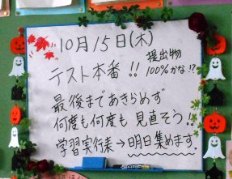 10月15日(木)
テスト本番!!
提出物
100%かな!?
最後まであきらめず
何度も何度も見直そう!!
学習実行表→明日集めます。